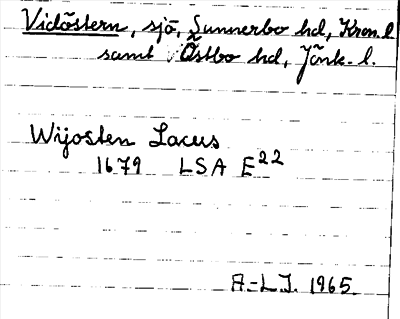 Vidöstern, sjö, Sunnerbo hd, Kron. l
samt Östbo hd, Jönk. l.
Wijosten Lacus
1679 LSA E22
A.-L.J. 1965.